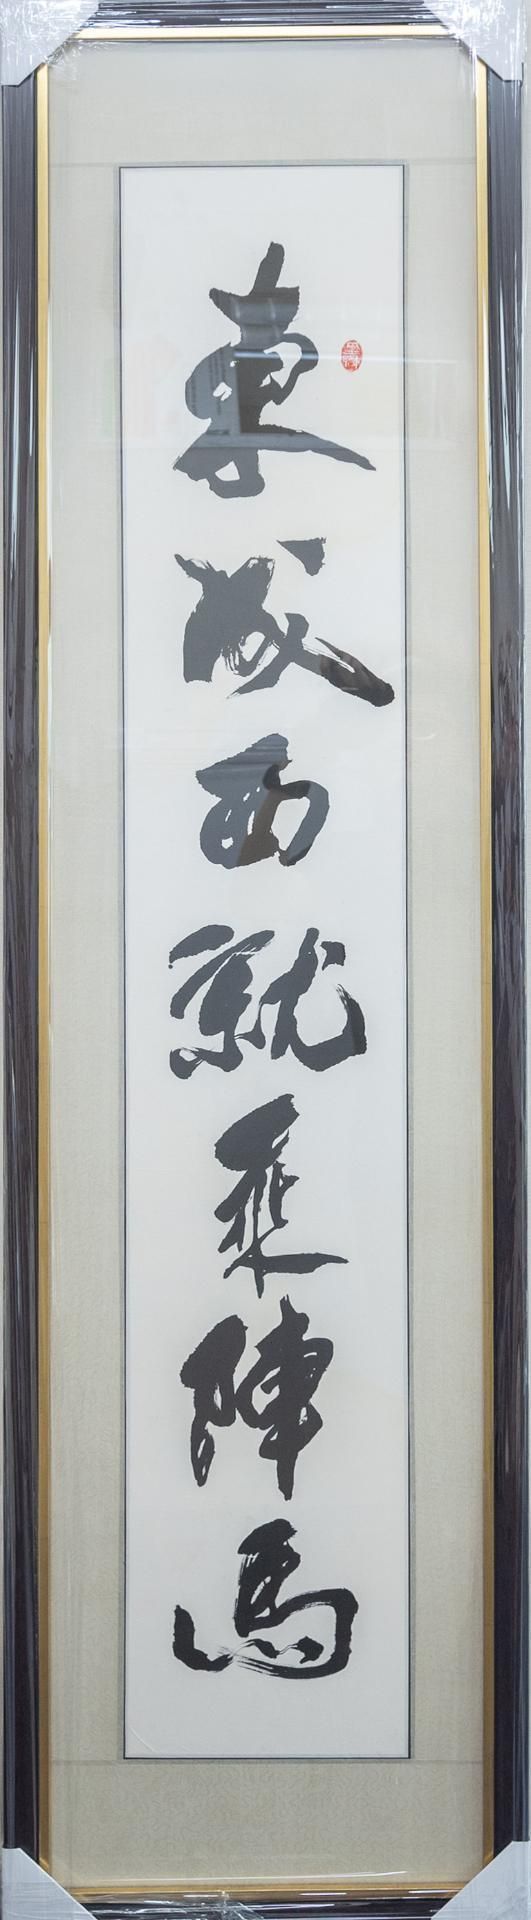 東成西就乘陣馬